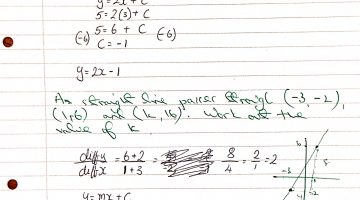 y=2x+c
5=2(3)+C
(-6) 5=6+C (-6)
C=-1
y=2x-1
A straight line passes through (-3,-2),
(1,6) and (k,16). Work out the
value of k.
diff y / diff x = 6+2 / 1+3 = 8/4 = 2/1 = 2
y=mx+c